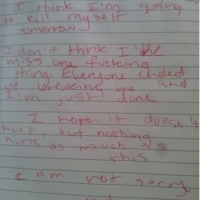 I think I'm going
to kill myself
tomorrow.
I don't think I'll
miss one fucking
thing. Everyone ended
up breaking me and
I'm just done
I hope it doesn't
hurt, but nothing
hurts as much as
this
I am not sorry.